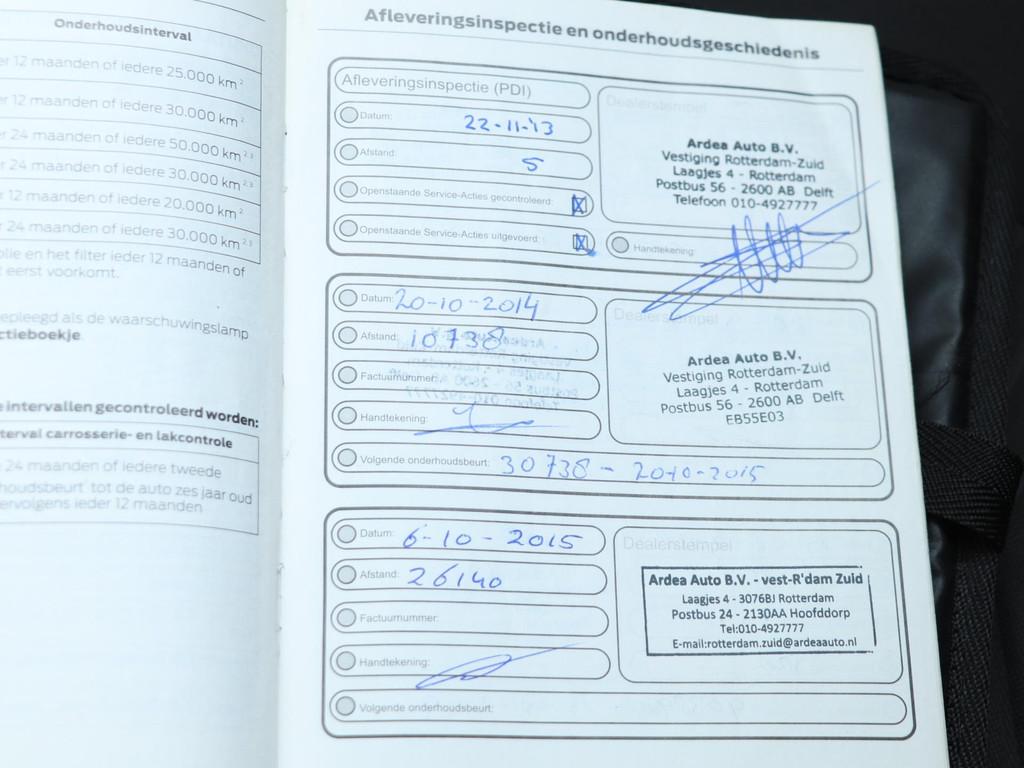 Onderhoudsinterval
12 maanden of iedere 25.000 km²
12 maanden of iedere 30.000 km²
24 maanden of iedere 50.000 km²,³
24 maanden of iedere 30.000 km²,³
12 maanden of iedere 20.000 km²
24 maanden of iedere 30.000 km²,³
olie en het filter ieder 12 maanden of
eerst voorkomt.
epleegd als de waarschuwingslamp
ctieboekje
e intervallen gecontroleerd worden:
terval carrosserie- en lakcontrole
24 maanden of iedere tweede
houdsbeurt tot de auto zes jaar oud
ervolgens ieder 12 maanden
Afleveringsinspectie en onderhoudsgeschiedenis
Afleveringsinspectie (PDI)
Datum: 22-11-'13
Afstand: 5
Openstaande Service-Acties gecontroleerd:
Openstaande Service-Acties uitgevoerd:
Dealerstempel
Ardea Auto B.V.
Vestiging Rotterdam-Zuid
Laagjes 4 - Rotterdam
Postbus 56 - 2600 AB Delft
Telefoon 010-4927777
Handtekening:
Datum: 20-10-2014
Afstand: 10738
Factuurnummer:
Handtekening:
Volgende onderhoudsbeurt: 30738 - 20-10-2015
Dealerstempel
Ardea Auto B.V.
Vestiging Rotterdam-Zuid
Laagjes 4 - Rotterdam
Postbus 56 - 2600 AB Delft
EB55E03
Datum: 6-10-2015
Afstand: 26140
Factuurnummer:
Handtekening:
Volgende onderhoudsbeurt:
Dealerstempel
Ardea Auto B.V. - vest-R'dam Zuid
Laagjes 4 - 3076BJ Rotterdam
Postbus 24 - 2130AA Hoofddorp
Tel:010-4927777
E-mail:rotterdam.zuid@ardeaauto.nl